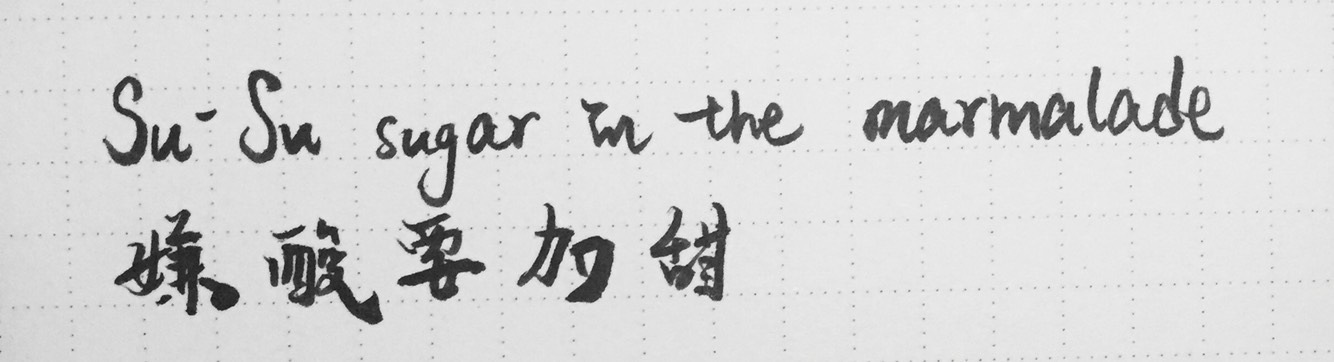 Su-Su sugar in the marmalade
嫌酸要加甜